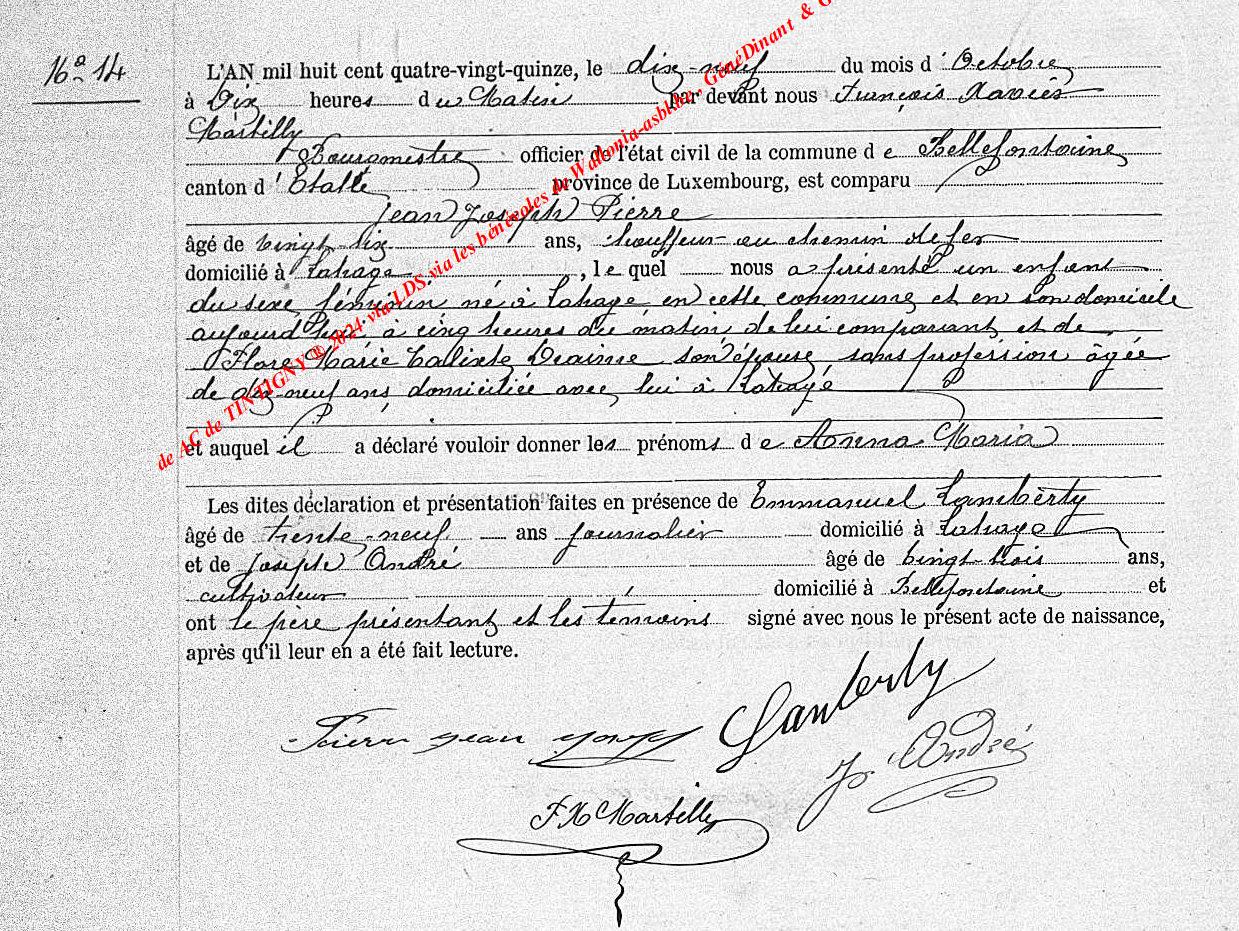 16a 14
L'AN mil huit cent quatre-vingt-quinze, le dix-neuf du mois d'Octobre
à Dix heures du Matin par devant nous François Xavier
Martilly
Bourgmestre officier de l'état civil de la commune de Bellefontaine
canton d'Etalle province de Luxembourg, est comparu
Jean Joseph Pierre
âgé de vingt six ans, chauffeur au chemin de fer
domicilié à Lahage, lequel nous a présenté un enfant
du sexe féminin né à Lahage en cette commune et en son domicile
aujourd'hui à cinq heures du matin de lui comparant et de
Flore Marie Calixte son épouse sans profession âgée
de dix-neuf ans domiciliée avec lui à Lahage
et auquel il a déclaré vouloir donner les prénoms de Anna Maria
Les dites déclaration et présentation faites en présence de Emmanuel Lamberty
âgé de trente-neuf ans journalier domicilié à Lahage
et de Joseph André âgé de vingt-trois ans,
cultivateur domicilié à Bellefontaine et
ont le père présentant et les témoins signé avec nous le présent acte de naissance,
après qu'il leur en a été fait lecture.
Pierre Jean Joseph
Lamberty
J. André
F X Martilly
de AC de TINTIGNY © 2024 via LDS via les bénévoles de Wallonia-asbl.be, GénéDinant & G